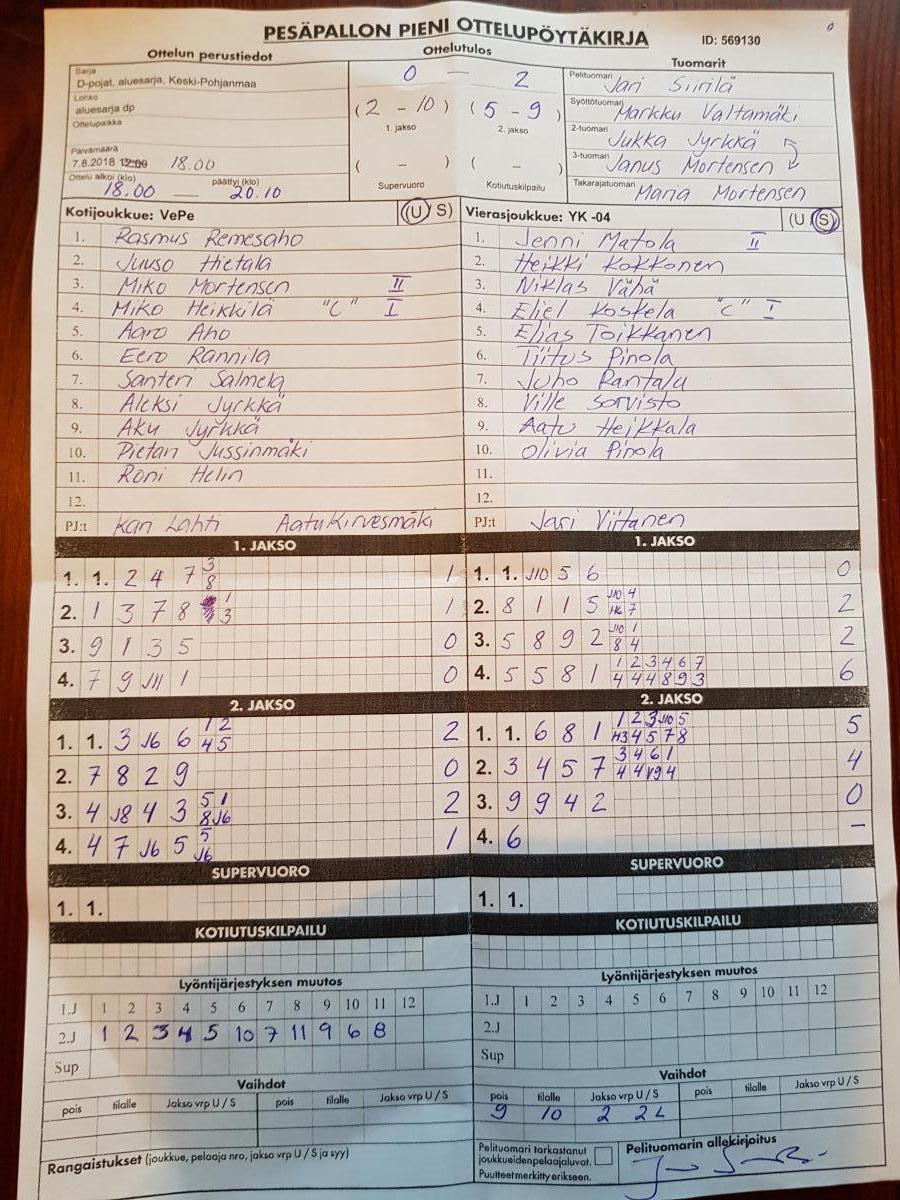 PESÄPALLON PIENI OTTELUPÖYTÄKIRJA ID: 569130
Ottelun perustiedot Ottelutulos Tuomarit
Sarja
D-pojat, aluesarja, Keski-Pohjanmaa
Lohko
aluesarja dp
Ottelupaikka
Päivämäärä
7.8.2018 12:00 18.00
Ottelu alkoi (klo) päättyi (klo)
18.00 — 20.10
0 — 2
(2 - 10) (5 - 9)
1. jakso 2. jakso
( - ) ( - )
Supervuoro Kotiutuskilpailu
Pelituomari Jari Siirilä
Syöttötuomari Markku Valtamäki
2-tuomari Jukka Jyrkkä
3-tuomari Janus Mortensen
Takarajatuomari Mana Mortensen
Kotijoukkue: VePe (U/S)
1. Rasmus Remesaho
2. Juuso Hietala
3. Miko Mortensen II
4. Miko Heikkilä "C" I
5. Aaro Aho
6. Eero Rannila
7. Santeri Salmela
8. Aleksi Jyrkkä
9. Aku Jyrkkä
10. Pietari Jussinmäki
11. Roni Helin
12.
PJ:t Kari Lahti Aatu Kirvesmäki
Vierasjoukkue: YK -04 (U/S)
1. Jenni Matola II
2. Heikki Kokkonen
3. Niklas Vähä
4. Eliel Koskela "C" I
5. Elias Toikkanen
6. Tiitus Pinola
7. Juho Rantala
8. Ville Sorvisto
9. Aatu Heikkala
10. Olivia Pinola
11.
12.
PJ:t Jari Viitanen
1. JAKSO
1. 1. 2 4 7 3 8 1
2. 1 3 7 8 1 3 1
3. 9 1 3 5 0
4. 7 9 J11 1 0
1. JAKSO
1. 1. J10 5 6 0
2. 8 1 1 5 J10 4 7 2
3. 5 8 9 2 J10 1 8 4 2
4. 5 5 8 1 1 2 3 4 6 7 4 4 4 8 9 3 6
2. JAKSO
1. 1. 3 J6 6 1 2 4 5 2
2. 7 8 2 9 0
3. 4 J8 4 3 5 1 8 J6 2
4. 4 7 J6 5 5 J6 1
2. JAKSO
1. 1. 6 8 1 1 2 3 J10 5 H3 4 5 7 8 5
2. 3 4 5 7 3 4 6 1 4 4 V9 4 4
3. 9 9 4 2 0
4. 6 –
SUPERVUORO
1. 1.
SUPERVUORO
1. 1.
KOTIUTUSKILPAILU
KOTIUTUSKILPAILU
Lyöntijärjestyksen muutos
1.J 1 2 3 4 5 6 7 8 9 10 11 12
2.J 1 2 3 4 5 10 7 11 9 6 8
Sup
Lyöntijärjestyksen muutos
1.J 1 2 3 4 5 6 7 8 9 10 11 12
2.J
Sup
Vaihdot
pois tilalle Jakso vrp U / S pois tilalle Jakso vrp U / S
Vaihdot
pois tilalle Jakso vrp U / S pois tilalle Jakso vrp U / S
9 10 2 2 L
Rangaistukset (joukkue, pelaaja nro, jakso vrp U / S ja syy)
Pelituomari tarkastanut
joukkueidenpelaajaluvat.
Puutteet merkitty erikseen.
Pelituomarin allekirjoitus